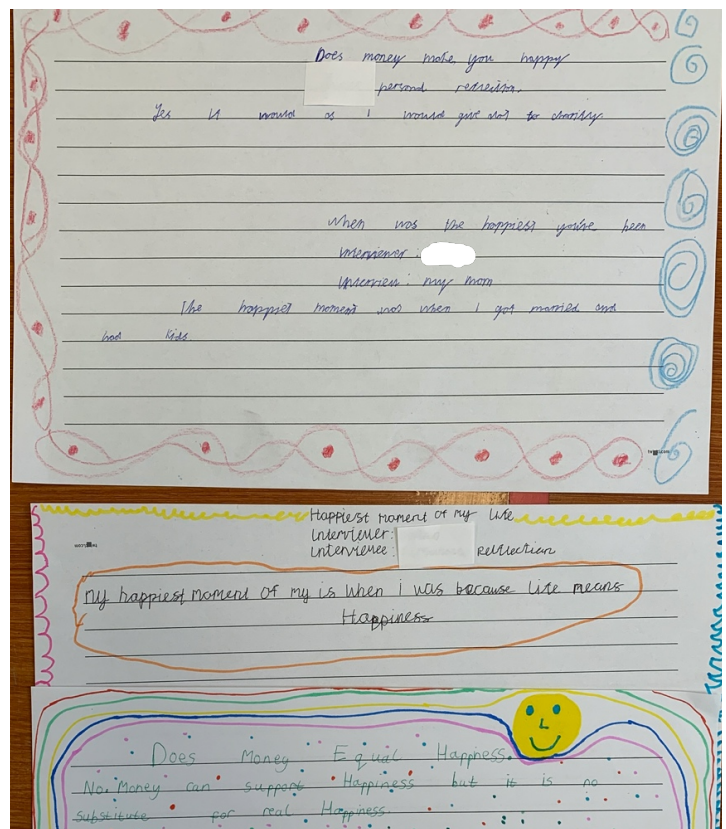 Does money make you happy
personal reflection.
Yes it would as I would give alot to charity.
When was the happiest you've been
Interviewer :
Interview: my mom
The happiest moment was when I got married and
had kids.
Happiest moment of my life
Interviewer:
Interviewee: Reflection
my happiest moment of my is when i was because life means
Happiness
Does Money Equal Happness.
No. Money can support Happiness but it is no
substitute for real Happiness.